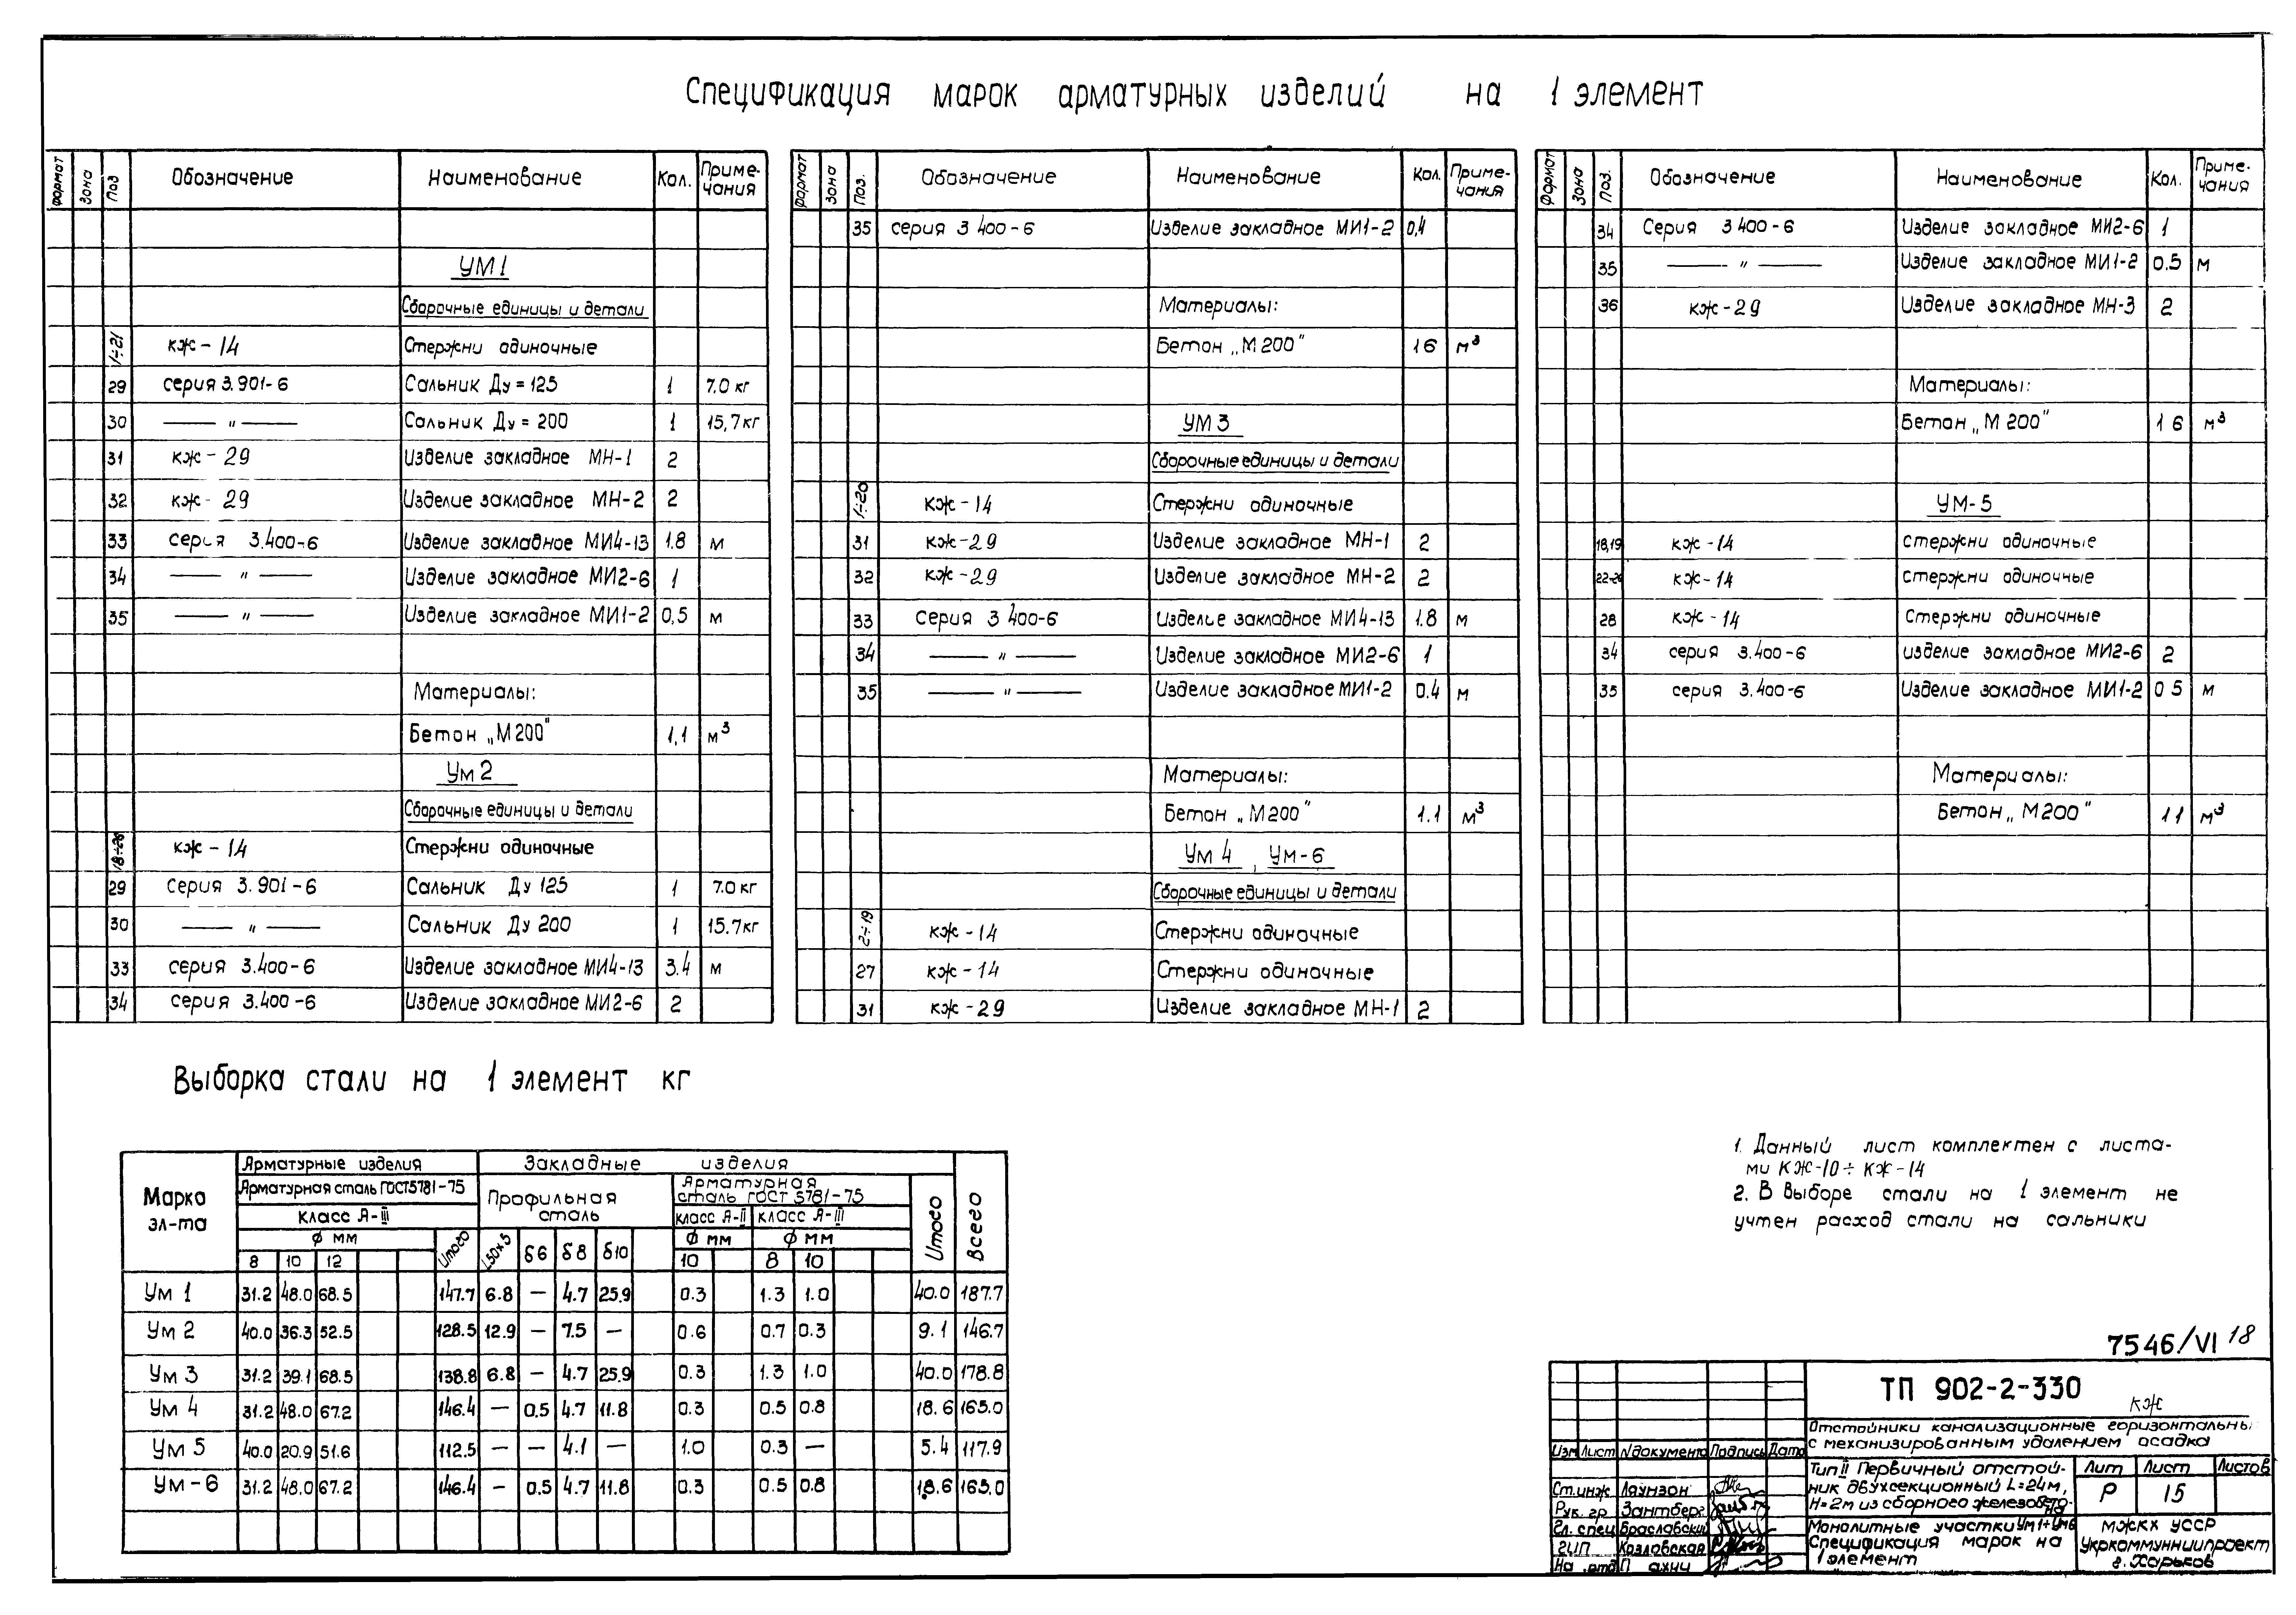 Спецификация марок арматурных изделий на 1 элемент
Формат Зона Поз Обозначение Наименование Кол. Примечания
УМ1
Сборочные единицы и детали
1÷21 кж-14 Стержни одиночные
29 серия 3.901-6 Сальник Ду=125 1 7.0 кг
30 — " — Сальник Ду=200 1 15,7кг
31 кж-29 Изделие закладное МН-1 2
32 кж-29 Изделие закладное МН-2 2
33 серия 3.400-6 Изделие закладное МИ4-13 1.8 м
34 — " — Изделие закладное МИ2-6 1
35 — " — Изделие закладное МИ1-2 0,5 м
Материалы:
Бетон „М200" 1,1 м³
Ум2
Сборочные единицы и детали
кж-14 Стержни одиночные
29 серия 3.901-6 Сальник Ду 125 1 7.0 кг
30 — " — Сальник Ду 200 1 15.7кг
33 серия 3.400-6 Изделие закладное МИ4-13 3.4 м
34 серия 3.400-6 Изделие закладное МИ2-6 2
Формат Зона Поз. Обозначение Наименование Кол. Примечания
35 серия 3 400-6 Изделие закладное МИ1-2 0,4
Материалы:
Бетон „М200" 16 м³
УМ3
Сборочные единицы и детали
1÷20 кж-14 Стержни одиночные
31 кж-29 Изделие закладное МН-1 2
32 кж-29 Изделие закладное МН-2 2
33 Серия 3 400-6 Изделие закладное МИ4-13 1.8 м
34 — " — Изделие закладное МИ2-6 1
35 — " — Изделие закладное МИ1-2 0.4 м
Материалы:
Бетон „М200" 1.1 м³
Ум 4, Ум-6
Сборочные единицы и детали
2÷19 кж-14 Стержни одиночные
27 кж-14 Стержни одиночные
31 кж-29 Изделие закладное МН-1 2
Формат Зона Поз. Обозначение Наименование Кол. Примечания
34 Серия 3 400-6 Изделие закладное МИ2-6 1
35 — " — Изделие закладное МИ1-2 0.5 м
36 кж-29 Изделие закладное МН-3 2
Материалы:
Бетон „М200" 1 6 м³
УМ-5
18,19 кж-14 стержни одиночные
кж-14 стержни одиночные
28 кж-14 Стержни одиночные
34 серия 3.400-6 изделие закладное МИ2-6 2
35 серия 3.400-6 Изделие закладное МИ1-2 0 5 м
Материалы:
Бетон „М200" 1 1 м³
Выборка стали на 1 элемент кг
Марка эл-та Арматурные изделия Закладные изделия Всего
Арматурная сталь ГОСТ5781-75 Профильная сталь Арматурная сталь ГОСТ 5781-75 Итого
класс А-III класс А-II класс А-III
ф мм Итого L50×5 δ6 δ8 δ10 ф мм ф мм
8 10 12 10 8 10
Ум 1 31.2 48.0 68.5 147.7 6.8 — 4.7 25.9 0.3 1.3 1.0 40.0 187.7
Ум 2 40.0 36.3 52.5 128.5 12.9 — 7.5 — 0.6 0.7 0.3 9.1 146.7
Ум 3 31.2 39.1 68.5 138.8 6.8 — 4.7 25.9 0.3 1.3 1.0 40.0 178.8
Ум 4 31.2 48.0 67.2 146.4 — 0.5 4.7 11.8 0.3 0.5 0.8 18.6 165.0
Ум 5 40.0 20.9 51.6 112.5 — — 4.1 — 1.0 0.3 — 5.4 117.9
Ум-6 31.2 48.0 67.2 146.4 — 0.5 4.7 11.8 0.3 0.5 0.8 18.6 165.0
1. Данный лист комплектен с листа-
ми КЖ-10÷КЖ-14
2. В выборе стали на 1 элемент не
учтен расход стали на сальники
7546/VI 18
ТП 902-2-330 КЖ
Отстойники канализационные горизонтальны
с механизированным удалением осадка
Изм Лист Nдокумента Подпись Дата
Тип II Первичный отстой-
ник двухсекционный L=24м,
H=2м из сборного железобето-
на
Лит Лист Листов
Р 15
Ст.инж. Лаунзон
Рук. гр Зантберг
Гл. спец Браславски
ГИП Козловская
Монолитные участки Ум1÷Ум6
Спецификация марок на
1 элемент
МЖКХ УССР
Укркоммунниипроект
г. Харьков